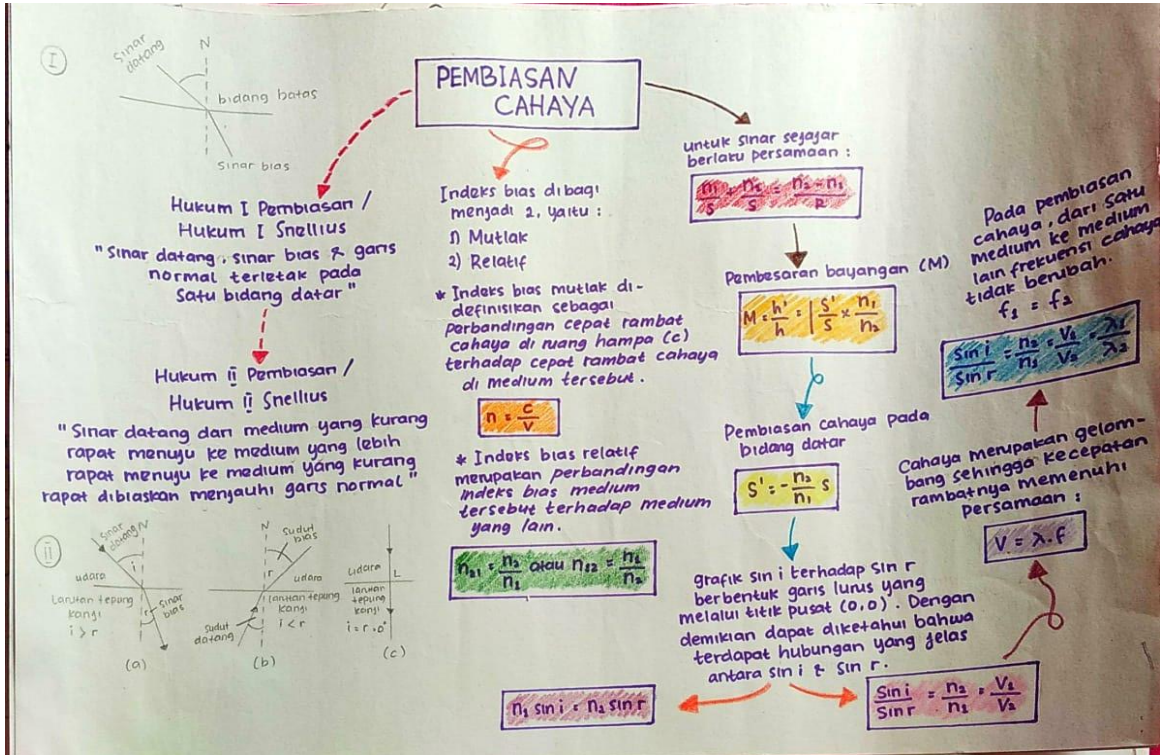 I
Sinar
datang
N
bidang batas
Sinar bias
PEMBIASAN
CAHAYA
Hukum I Pembiasan /
Hukum I Snellius
"Sinar datang, sinar bias & garis
normal terletak pada
satu bidang datar"
Hukum ii Pembiasan /
Hukum ii Snellius
"Sinar datang dari medium yang kurang
rapat menuju ke medium yang lebih
rapat menuju ke medium yang kurang
rapat dibiaskan menjauhi garis normal"
ii
Sinar
datang
N
i
udara
Larutan tepung
kanji
i > r
r
Sinar
bias
(a)
N
Sudut
bias
r
udara
Larutan tepung
kanji
i < r
Sudut
datang
(b)
udara
L
larutan
tepung
kanji
i = r = 0°
(c)
Indeks bias dibagi
menjadi 2, yaitu :
1) Mutlak
2) Relatif
* Indeks bias mutlak di-
definisikan sebagai
perbandingan cepat rambat
cahaya di ruang hampa (c)
terhadap cepat rambat cahaya
di medium tersebut.
n = c/v
* Indeks bias relatif
merupakan perbandingan
indeks bias medium
tersebut terhadap medium
yang lain.
n21 = n2/n1 atau n12 = n1/n2
untuk sinar sejajar
berlaku persamaan :
n1/s + n2/s' = n2-n1/R
Pembesaran bayangan (M)
M = h'/h = |s'/s × n1/n2
Pembiasan cahaya pada
bidang datar
S' = -n2/n1 s
grafik sin i terhadap sin r
berbentuk garis lurus yang
melalui titik pusat (0,0). Dengan
demikian dapat diketahui bahwa
terdapat hubungan yang jelas
antara sin i & sin r.
n1 sin i = n2 sin r
sin i/sin r = n2/n1 = V1/V2
Cahaya merupakan gelom-
bang sehingga kecepatan
rambatnya memenuhi
persamaan :
V = λ.f
Pada pembiasan
cahaya, dari satu
medium ke medium
lain frekuensi cahaya
tidak berubah.
f1 = f2
sin i/sin r = n2/n1 = V1/V2 = λ1/λ2